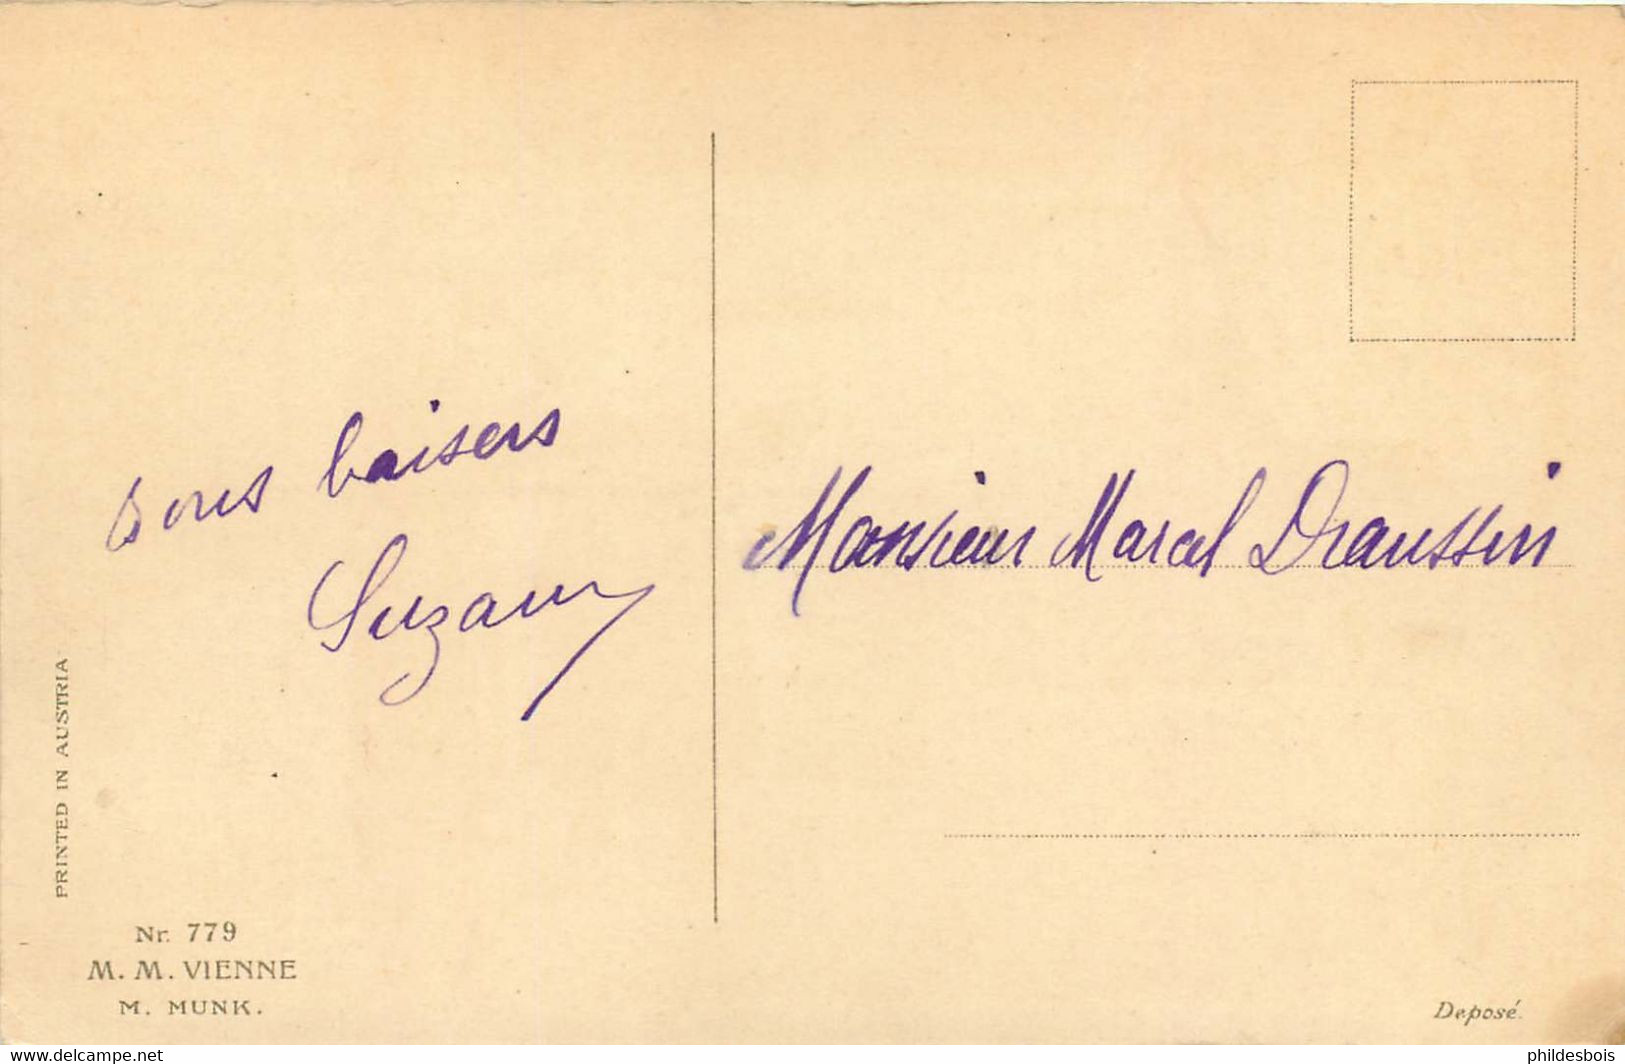 bons baisers
Suzanne
Monsieur Marcel Draussin
PRINTED IN AUSTRIA
Nr. 779
M. M. VIENNE
M. MUNK.
Deposé.
http://www.delcampe.net
phildesbois